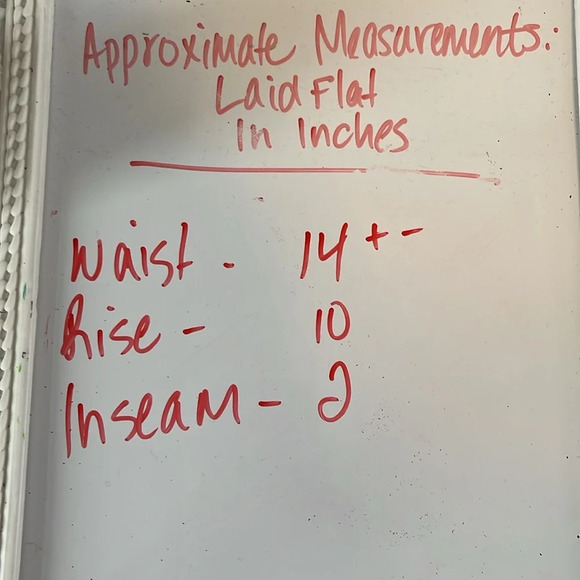 Approximate Measurements:
Laid Flat
In Inches
Waist - 14 + -
Rise - 10
Inseam - 2